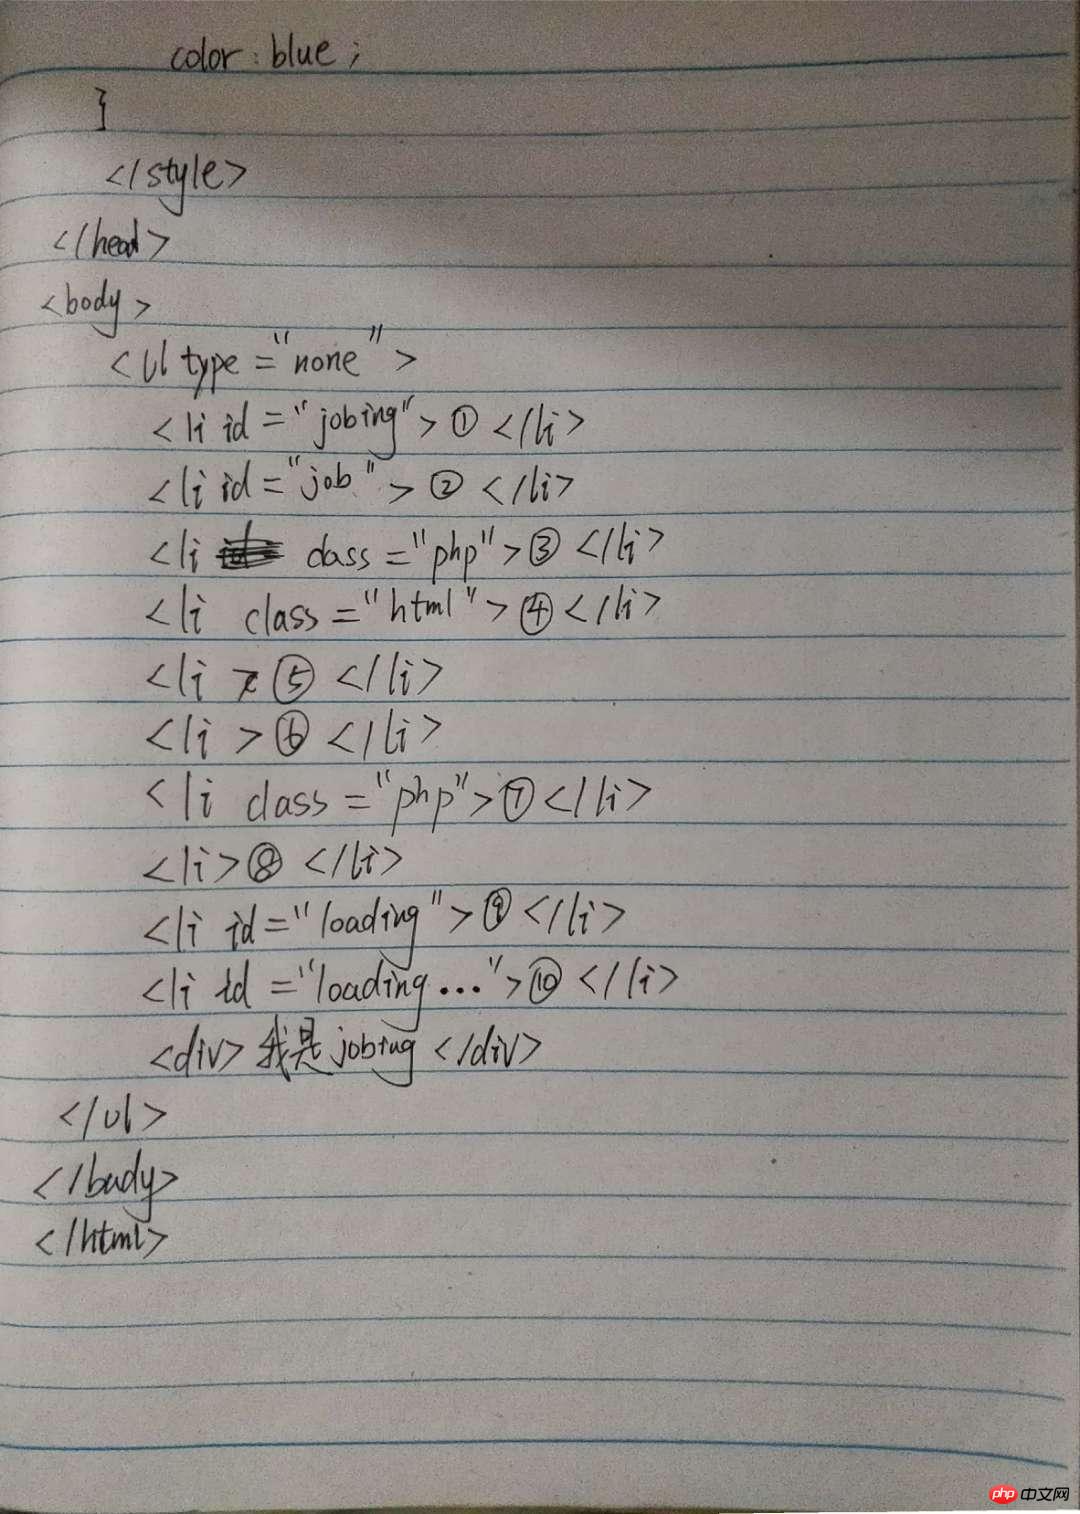 color : blue ;
}
</style>
</head>
<body>
<ul type="none">
<li id="jobing">①</li>
<li id="job">②</li>
<li class="php">③</li>
<li class="html">④</li>
<li>⑤</li>
<li>⑥</li>
<li class="php">⑦</li>
<li>⑧</li>
<li id="loading">⑨</li>
<li id="loading...">⑩</li>
<div>我是jobing</div>
</ul>
</body>
</html>
php 中文网